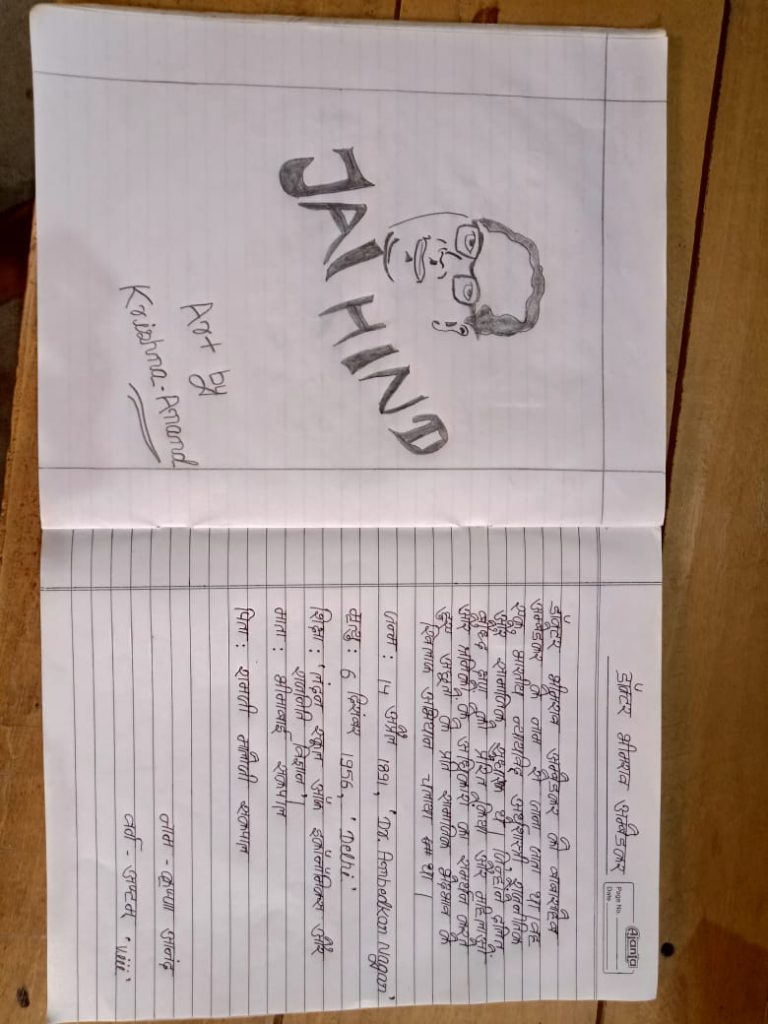 JAI HIND
Art by
Krishna-Anand
Ajanta
Page No.
Date
डॉक्टर भीमराव अम्बेडकर
डॉक्टर भीमराव अम्बेडकर को बाबासाहेब
अम्बेडकर के नाम से जाना जाता था। वह
एक भारतीय न्यायविद अर्थशास्त्री, राजनीतिक
और सामाजिक सुधारक थे। जिन्होंने दलित
बौद्ध को प्रेरित किया और महिलाओं
और श्रमिकों के अधिकारों का समर्थन करते
हुए अछूतों के प्रति सामाजिक भेदभाव के
खिलाफ अभियान चलाया था।
जन्म : 14 अप्रैल 1891, 'Dr. Ambedkar Nagar'
मृत्यु : 6 दिसंबर 1956, 'Delhi'
शिक्षा : 'लंदन स्कूल ऑफ इकोनॉमिक्स और
राजनीति विज्ञान'।
माता : भीमाबाई सकपाल
पिता : रामजी मालोजी सकपाल
नाम - कृष्णा आनंद
वर्ग - अष्टम 'viii'